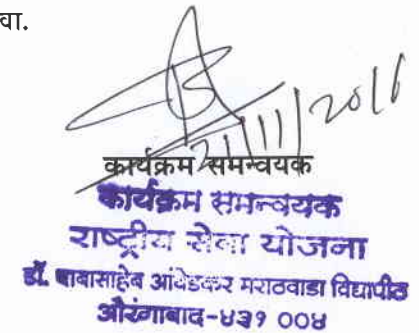 वा.
21/11/2016
कार्यक्रम समन्वयक
कार्यक्रम समन्वयक
राष्ट्रीय सेवा योजना
डॉ. बाबासाहेब आंबेडकर मराठवाडा विद्यापीठ
औरंगाबाद-४३१ ००४